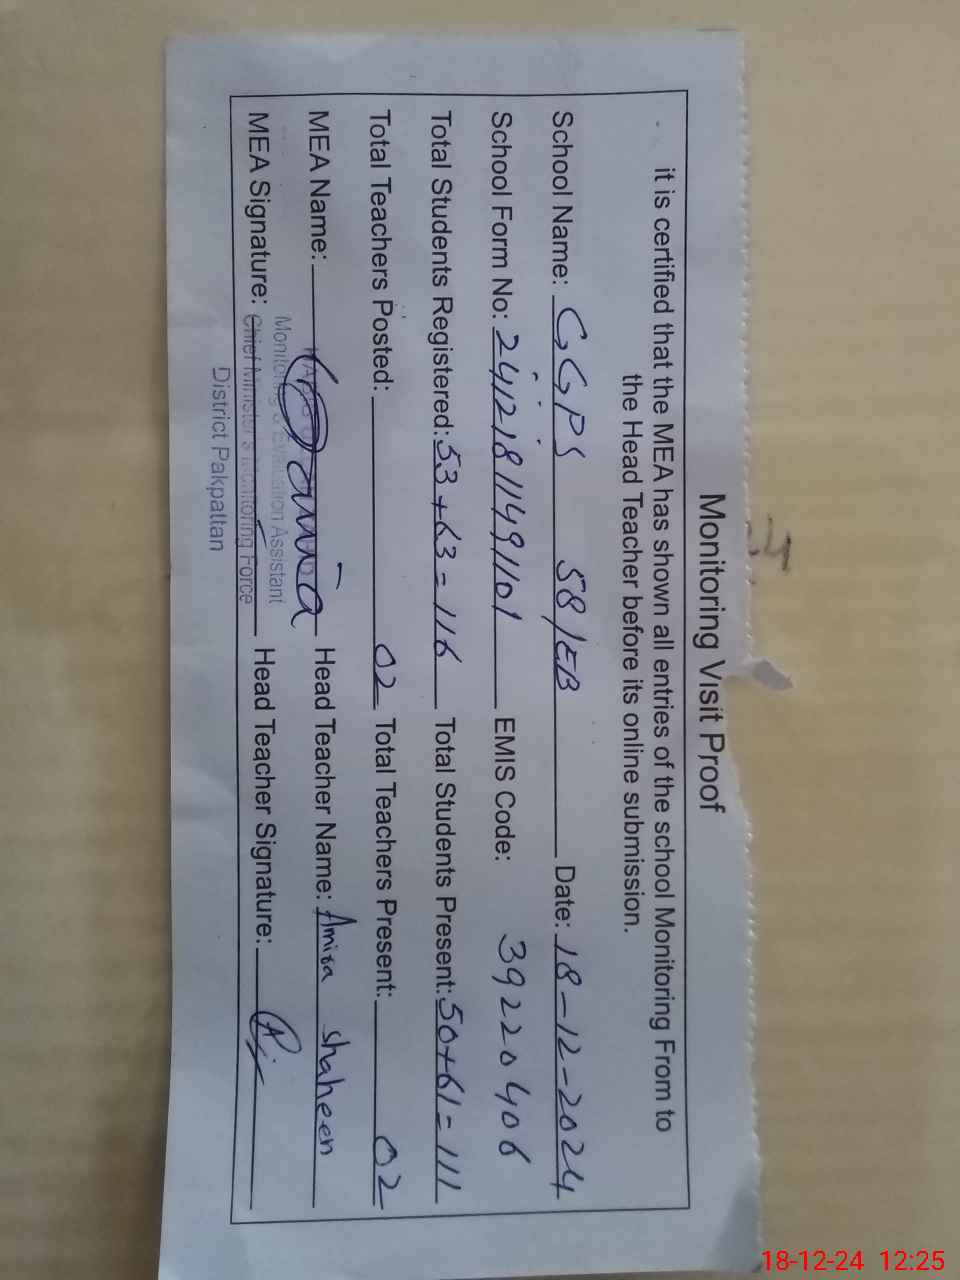 Monitoring Visit Proof
it is certified that the MEA has shown all entries of the school Monitoring From to
the Head Teacher before its online submission.
School Name: GGPS 58/EB Date: 18-12-2024
School Form No: EMIS Code: 39220406
Total Students Registered: 53+63=116 Total Students Present: 50+61=111
Total Teachers Posted: 02 Total Teachers Present: 02
MEA Name: Head Teacher Name: Amisa shaheen
Monitoring & Evaluation Assistant
MEA Signature: Chief Minister's Monitoring Force Head Teacher Signature:
District Pakpattan
18-12-24 12:25